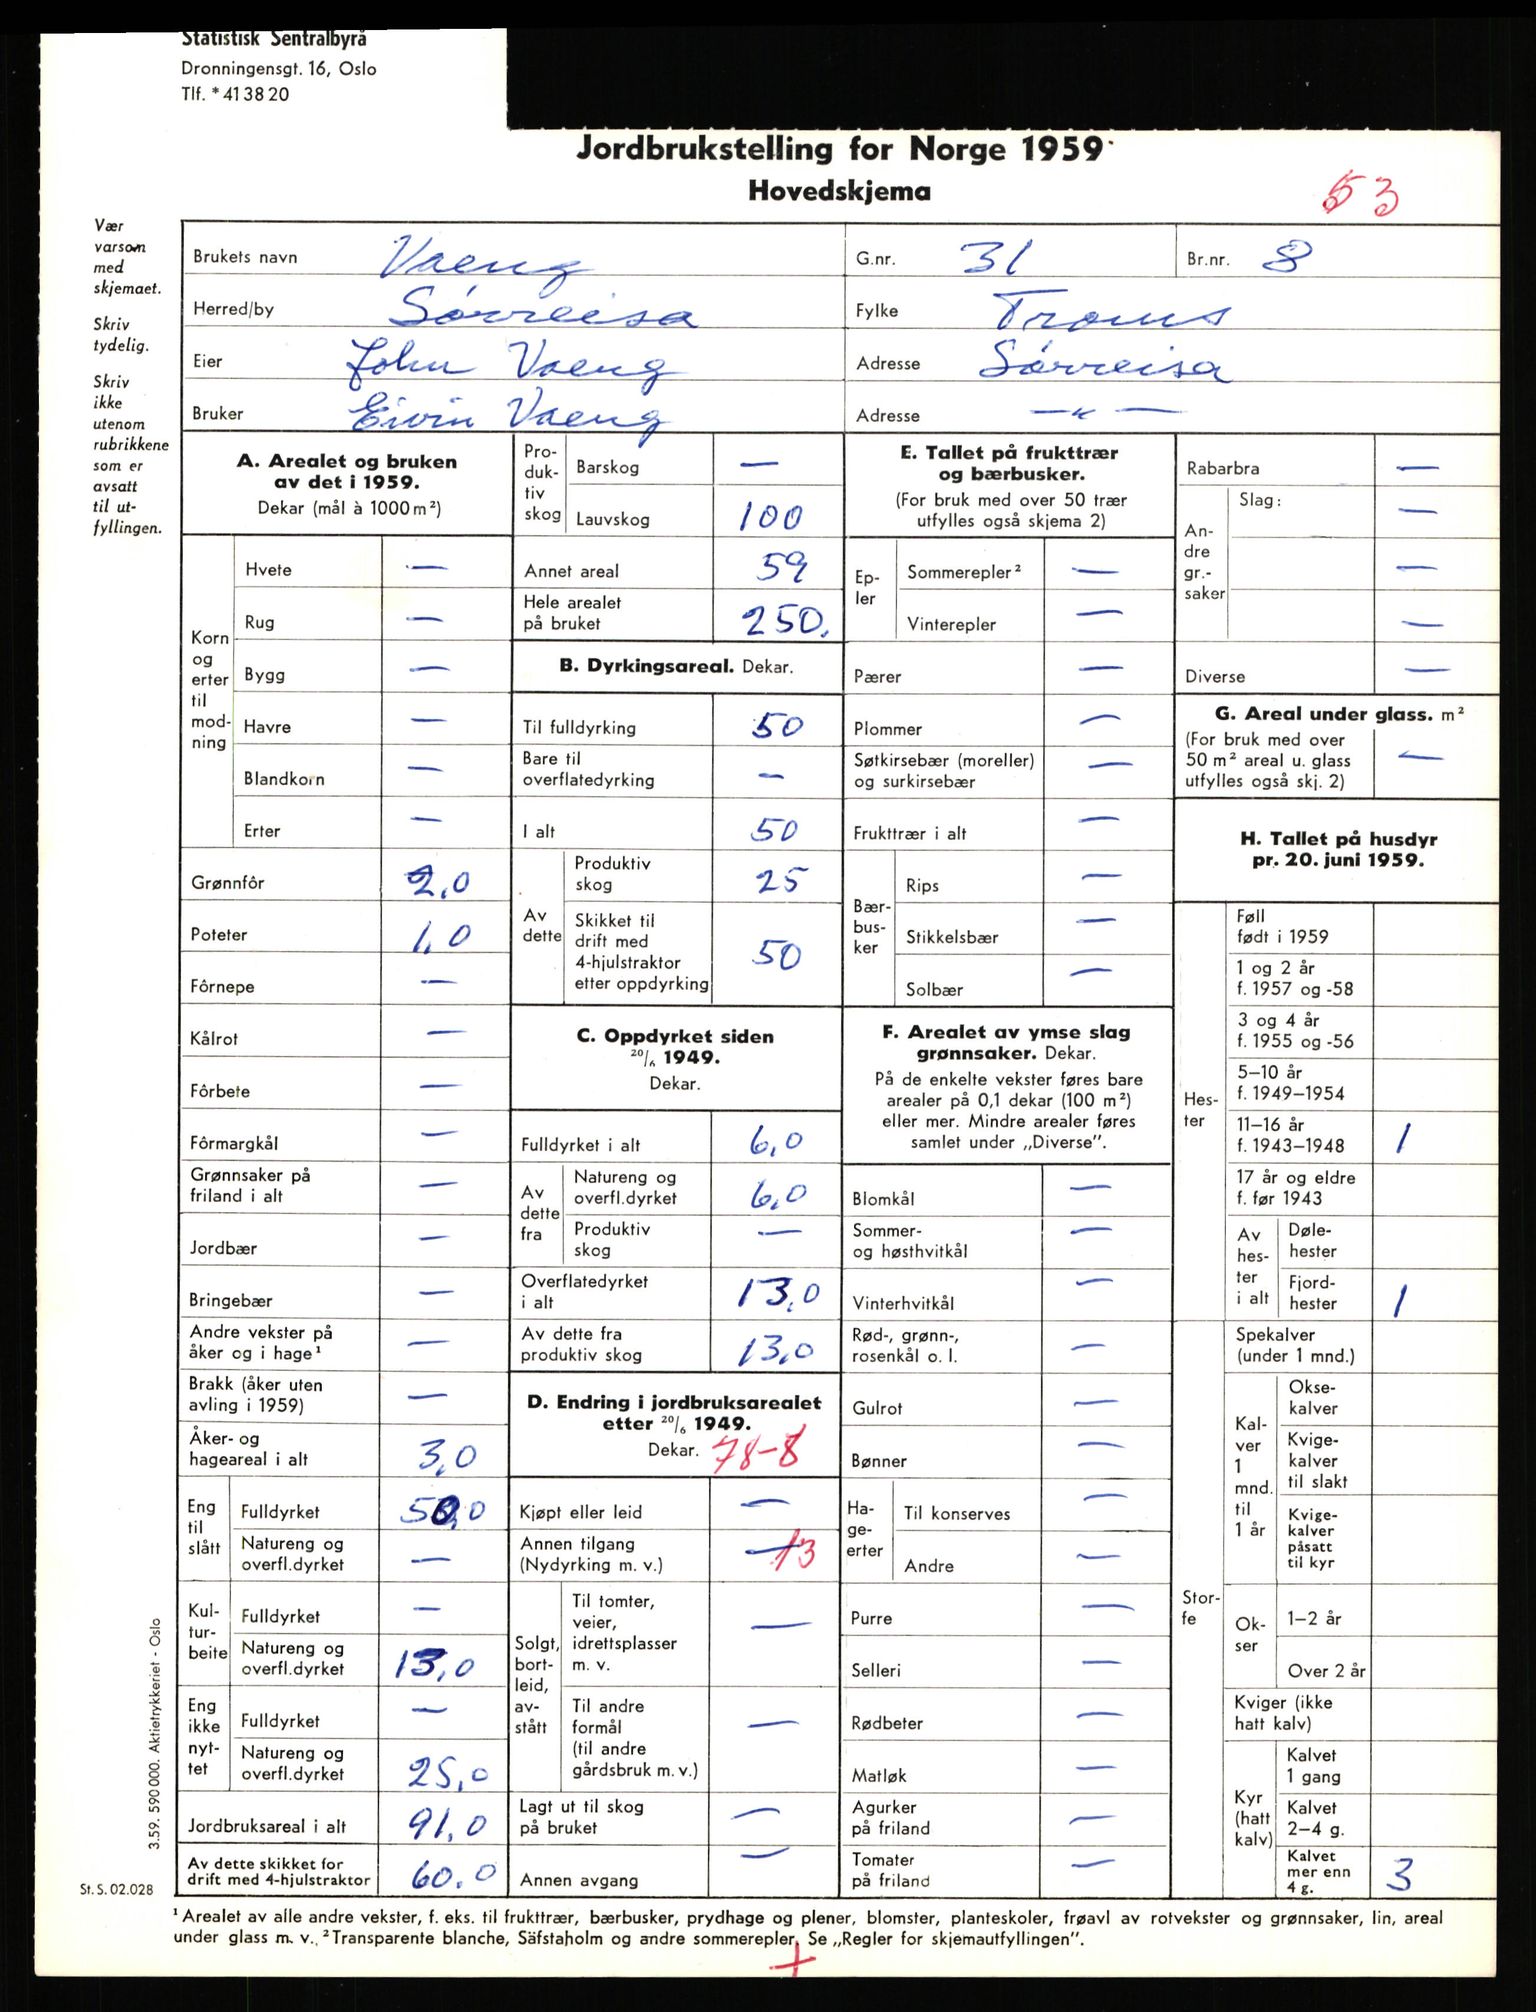 Statistisk Sentralbyrå
Dronningensgt. 16, Oslo
Tlf. * 41 38 20
Jordbrukstelling for Norge 1959
Hovedskjema
53
Vær
varsom
med
skjemaet.
Skriv
tydelig.
Skriv
ikke
utenom
rubrikkene
som er
avsatt
til ut-
fyllingen.
Brukets navn Vaeng G.nr. 31 Br.nr. 8
Herred/by Sørreisa Fylke Troms
Eier John Vaeng Adresse Sørreisa
Bruker Eivin Vaeng Adresse —"—
A. Arealet og bruken
av det i 1959.
Dekar (mål à 1000 m²)
Korn og erter til mod-ning
Hvete —
Rug —
Bygg —
Havre —
Blandkorn —
Erter —
Grønnfôr 2,0
Poteter 1,0
Fôrnepe —
Kålrot —
Fôrbete —
Fôrmargkål —
Grønnsaker på
friland i alt —
Jordbær —
Bringebær —
Andre vekster på
åker og i hage¹ —
Brakk (åker uten
avling i 1959) —
Åker- og
hageareal i alt 3,0
Eng til slått
Fulldyrket 50,0
Natureng og
overfl.dyrket —
Kul-tur-beite
Fulldyrket —
Natureng og
overfl.dyrket 13,0
Eng ikke nyt-tet
Fulldyrket —
Natureng og
overfl.dyrket 25,0
Jordbruksareal i alt 91,0
Av dette skikket for
drift med 4-hjulstraktor 60,0
Pro-duk-tiv skog
Barskog —
Lauvskog 100
Annet areal 59
Hele arealet
på bruket 250.
B. Dyrkingsareal. Dekar.
Til fulldyrking 50
Bare til
overflatedyrking —
I alt 50
Av dette
Produktiv
skog 25
Skikket til
drift med
4-hjulstraktor
etter oppdyrking 50
C. Oppdyrket siden
20/6 1949.
Dekar.
Fulldyrket i alt 6,0
Av dette fra
Natureng og
overfl.dyrket 6,0
Produktiv
skog —
Overflatedyrket
i alt 13,0
Av dette fra
produktiv skog 13,0
D. Endring i jordbruksarealet
etter 20/6 1949.
Dekar. 78-8
Kjøpt eller leid —
Annen tilgang
(Nydyrking m. v.) — 13
Solgt, bort-leid, av-stått
Til tomter,
veier,
idrettsplasser
m. v. —
Til andre
formål
(til andre
gårdsbruk m. v.) —
Lagt ut til skog
på bruket —
Annen avgang —
E. Tallet på frukttrær
og bærbusker.
(For bruk med over 50 trær
utfylles også skjema 2)
Ep-ler
Sommerepler² —
Vinterepler —
Pærer —
Plommer —
Søtkirsebær (moreller)
og surkirsebær —
Frukttrær i alt —
Bær-bus-ker
Rips —
Stikkelsbær —
Solbær —
F. Arealet av ymse slag
grønnsaker. Dekar.
På de enkelte vekster føres bare
arealer på 0,1 dekar (100 m²)
eller mer. Mindre arealer føres
samlet under „Diverse”.
Blomkål —
Sommer-
og høsthvitkål —
Vinterhvitkål —
Rød-, grønn-,
rosenkål o. l. —
Gulrot —
Bønner —
Ha-ge-erter
Til konserves —
Andre —
Purre —
Selleri —
Rødbeter —
Matløk —
Agurker
på friland —
Tomater
på friland —
Rabarbra —
An-dre gr.-saker
Slag: —
—
—
Diverse —
G. Areal under glass. m²
(For bruk med over
50 m² areal u. glass
utfylles også skj. 2) —
H. Tallet på husdyr
pr. 20. juni 1959.
Hes-ter
Føll
født i 1959
1 og 2 år
f. 1957 og -58
3 og 4 år
f. 1955 og -56
5–10 år
f. 1949–1954
11–16 år
f. 1943–1948 1
17 år og eldre
f. før 1943
Av hes-ter i alt
Døle-
hester
Fjord-
hester 1
Stor-fe
Spekalver
(under 1 mnd.)
Kal-ver 1 mnd. til 1 år
Okse-
kalver
Kvige-
kalver
til slakt
Kvige-
kalver
påsatt
til kyr
Ok-ser
1–2 år
Over 2 år
Kviger (ikke
hatt kalv)
Kyr (hatt kalv)
Kalvet
1 gang
Kalvet
2–4 g.
Kalvet
mer enn
4 g. 3
3.59. 590 000. Aktietrykkeriet - Oslo
St. S. 02.028
¹ Arealet av alle andre vekster, f. eks. til frukttrær, bærbusker, prydhage og plener, blomster, planteskoler, frøavl av rotvekster og grønnsaker, lin, areal
under glass m. v. ² Transparente blanche, Säfstaholm og andre sommerepler. Se „Regler for skjemautfyllingen”.
+